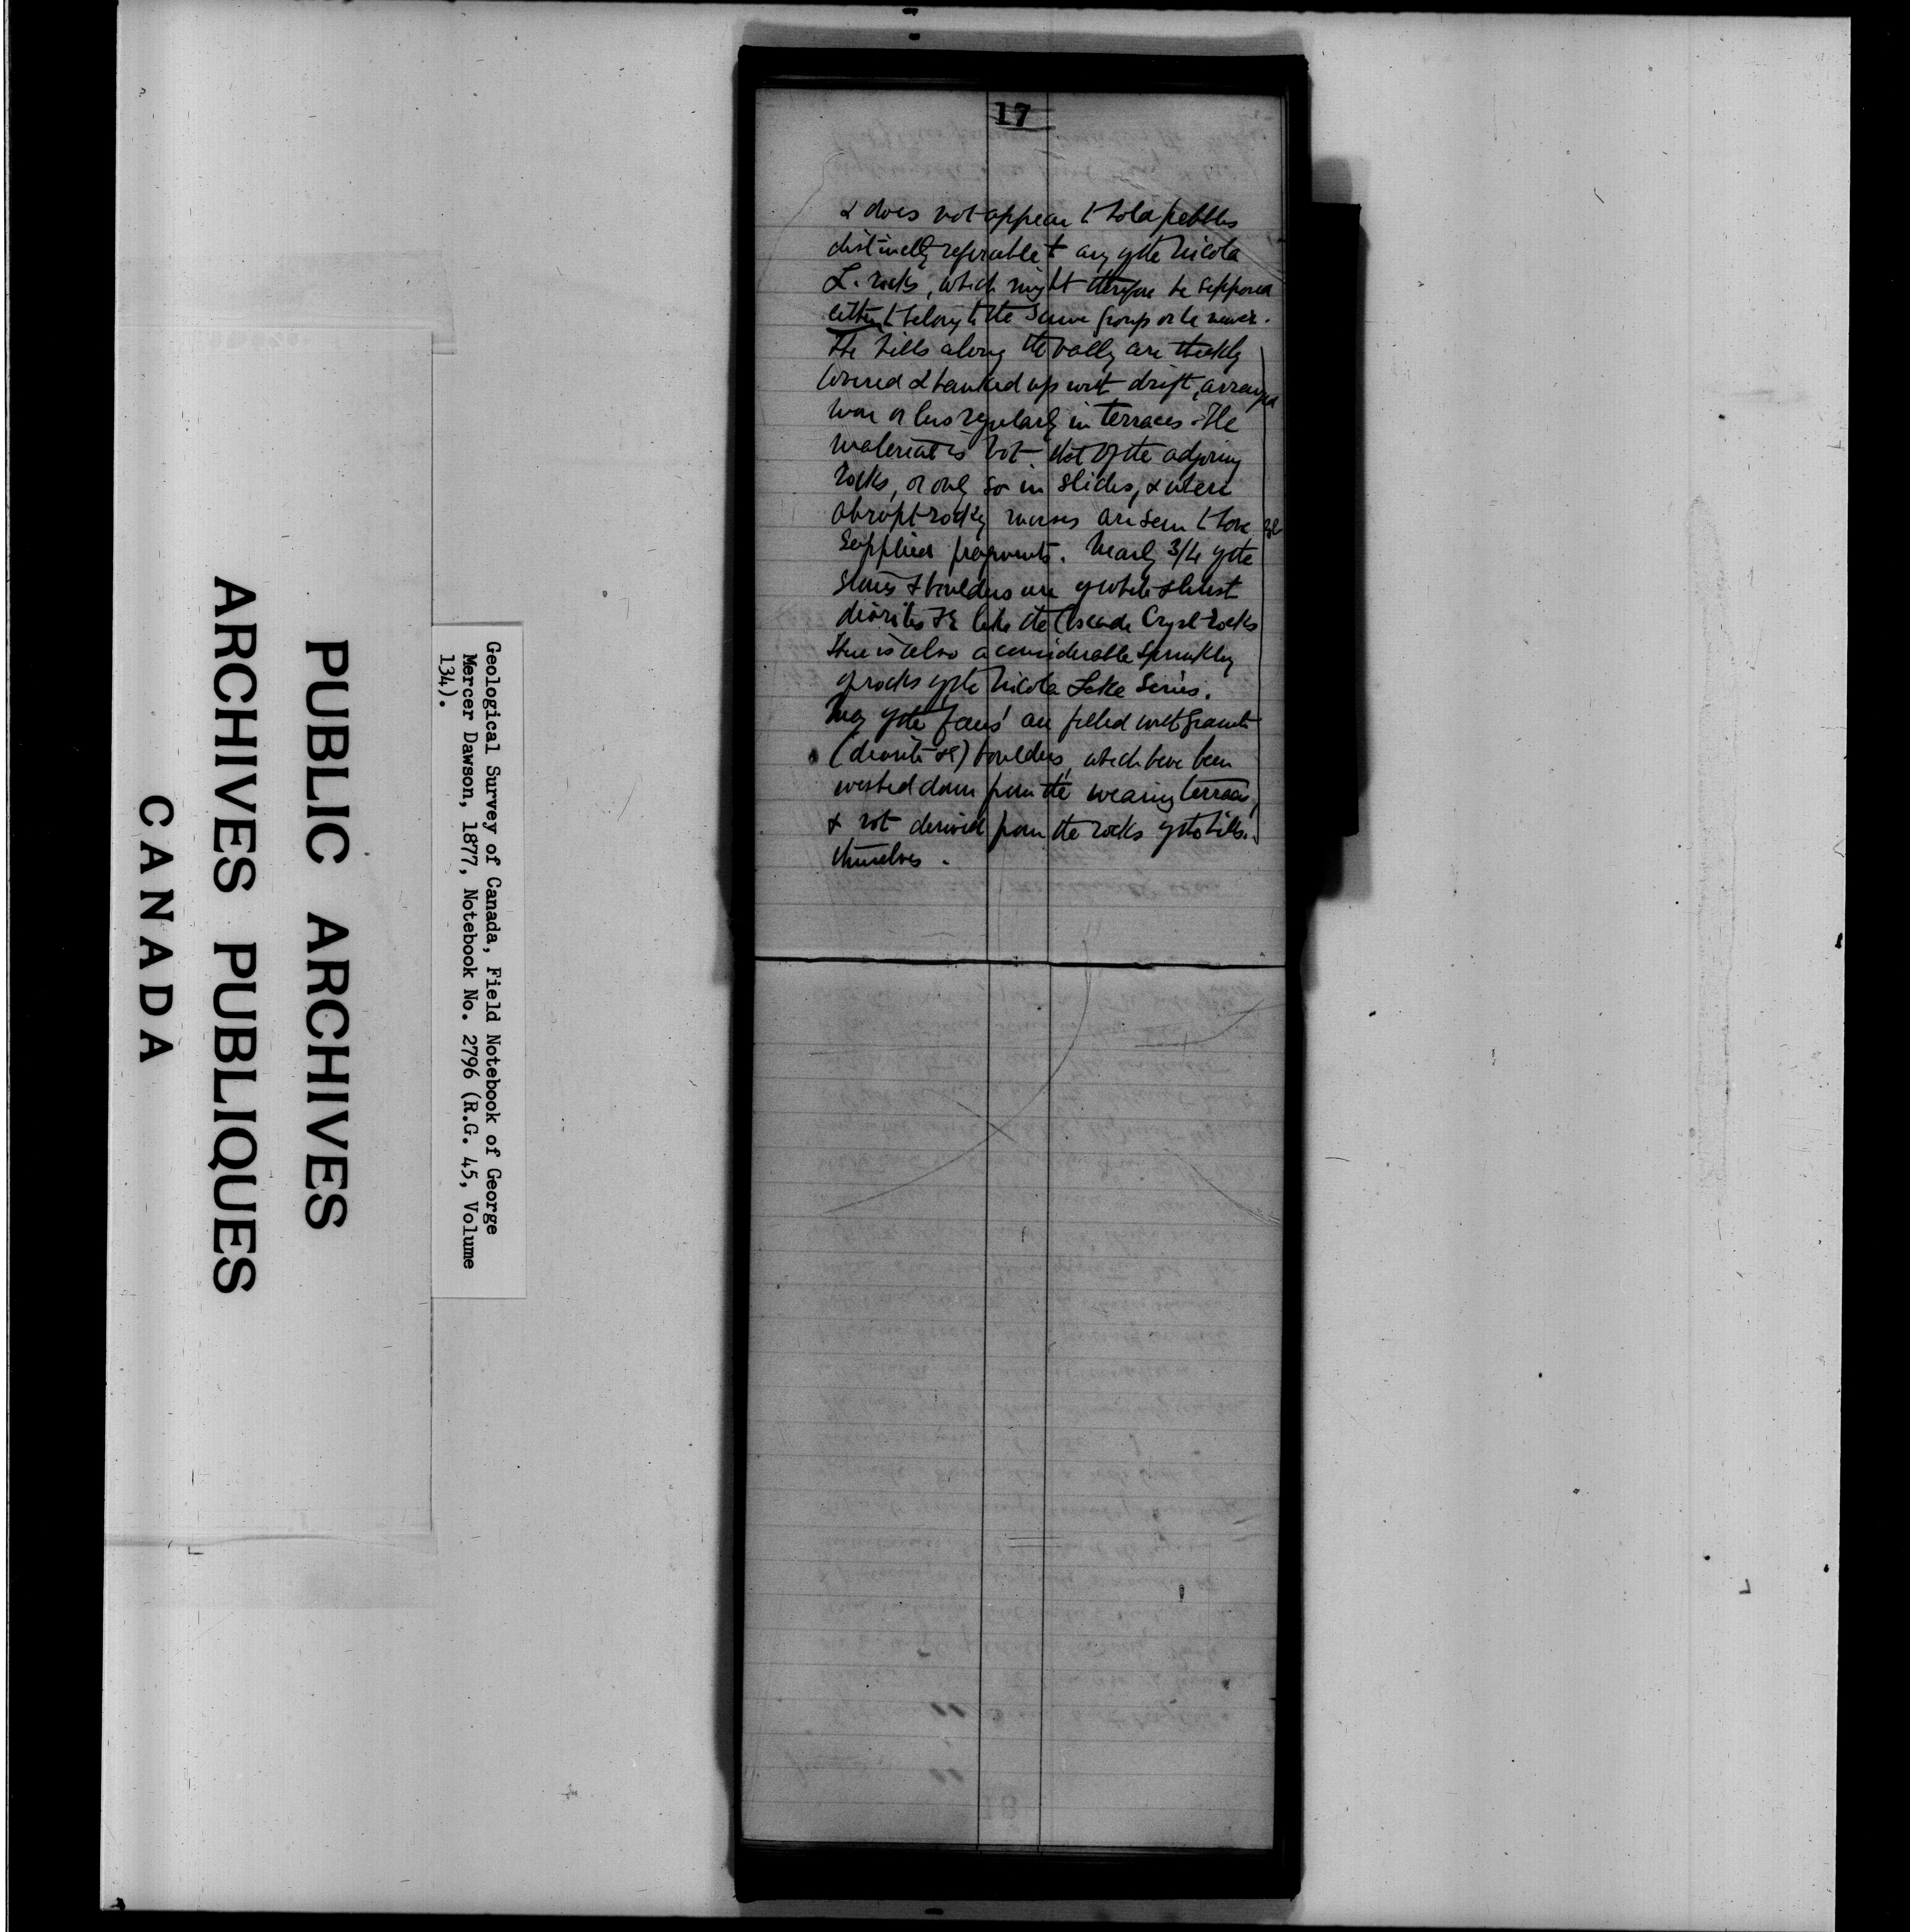 17
& does not appear to hold pebbles
distinctly referable to any of the Nicola
L. rocks, which might therefore be supposed
either to belong to the same group or be newer.
The hills along the vally are thickly
covered & banked up with drift, arranged
more or less regularly in terraces. The
material is not that of the adjoining
rocks, or only so in slides, & where
abrupt rocky masses are seen to have
supplied fragments. Nearly 3/4 of the
stones & boulders are of white & schist
diorites &c like the Cascade Cryst rocks
There is also a considerable sprinkling
of rocks of the Nicola Lake Series.
Many of the 'fans' are filled with granite
(diorite &c) boulders, which have been
washed down from the wearing terraces,
& not derived from the rocks of the hills
themselves.
Geological Survey of Canada, Field Notebook of George
Mercer Dawson, 1877, Notebook No. 2796 (R.G. 45, Volume
134).
PUBLIC ARCHIVES
ARCHIVES PUBLIQUES
CANADA